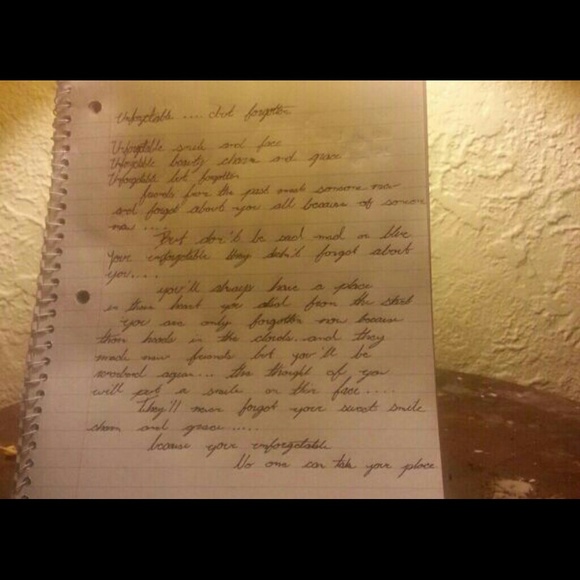 Unforgetable .... but forgotten
Unforgetable smile and face
Unforgetable beauty charm and grace
Unforgetable but forgotten
friends from the past meets someone new
and forgot about you all because of someone
new ....
But don't be sad mad or blue
Your unforgetable they didn't forgot about
you....
you'll always have a place
in there heart you stood from the start
you are only forgotten now because
there heads in the clouds and they
made new friends but you'll be
again.... the thought of you
will put a smile on there face ....
They'll never forgot your sweet smile
charm and grace .....
because your unforgetable
No one can take your place